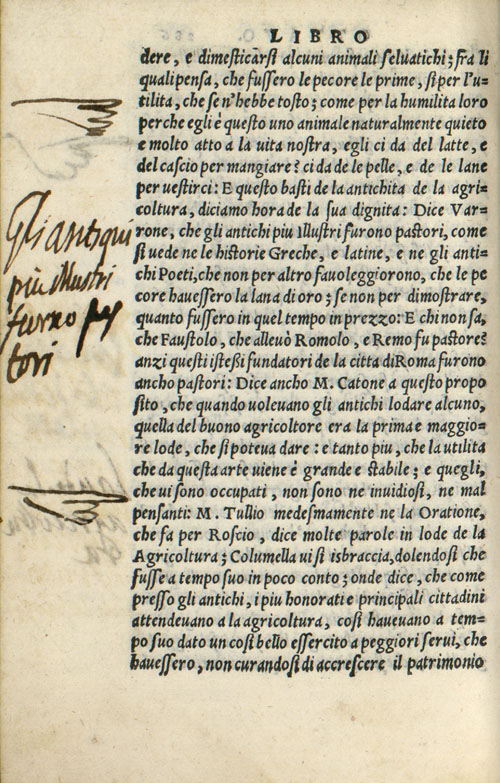 LIBRO
dere, e dimesticarsi alcuni animali seluatichi; fra li
quali pensa, che fussero le pecore le prime, si per l'u-
tilita, che se n'hebbe tosto; come per la humilita loro
perche egli è questo uno animale naturalmente quieto
e molto atto a la uita nostra, egli ci da del latte, e
del cascio per mangiare? ci da de le pelle, e de le lane
per uestirci: E questo basti de la antichita de la agri-
coltura, diciamo hora de la sua dignita: Dice Var-
rone, che gli antichi piu illustri furono pastori, come
si uede ne le historie Greche, e latine, e ne gli anti-
chi Poeti, che non per altro fauoleggiorono, che le pe
core hauessero la lana di oro; se non per dimostrare,
quanto fussero in quel tempo in prezzo: E chi non sa,
che Faustolo, che alleuò Romolo, e Remo fu pastore?
anzi questi istessi fundatori de la citta di Roma furono
ancho pastori: Dice ancho M. Catone a questo propo
sito, che quando uoleuano gli antichi lodare alcuno,
quella del buono agricoltore era la prima e maggio-
re lode, che si poteua dare: e tanto piu, che la utilita
che da questa arte uiene è grande e stabile; e quegli,
che ui sono occupati, non sono ne inuidiosi, ne mal
pensanti: M. Tullio medesmamente ne la Oratione,
che fa per Roscio, dice molte parole in lode de la
Agricoltura; Columella ui si isbraccia, dolendosi che
fusse a tempo suo in poco conto; onde dice, che come
presso gli antichi, i piu honorati e principali cittadini
attendeuano a la agricoltura, cosi haueuano a tem-
po suo dato un cosi bello essercito a peggiori serui, che
hauessero, non curandosi di accrescere il patrimonio
Gli antiqui
piu illustri
furno pas
tori